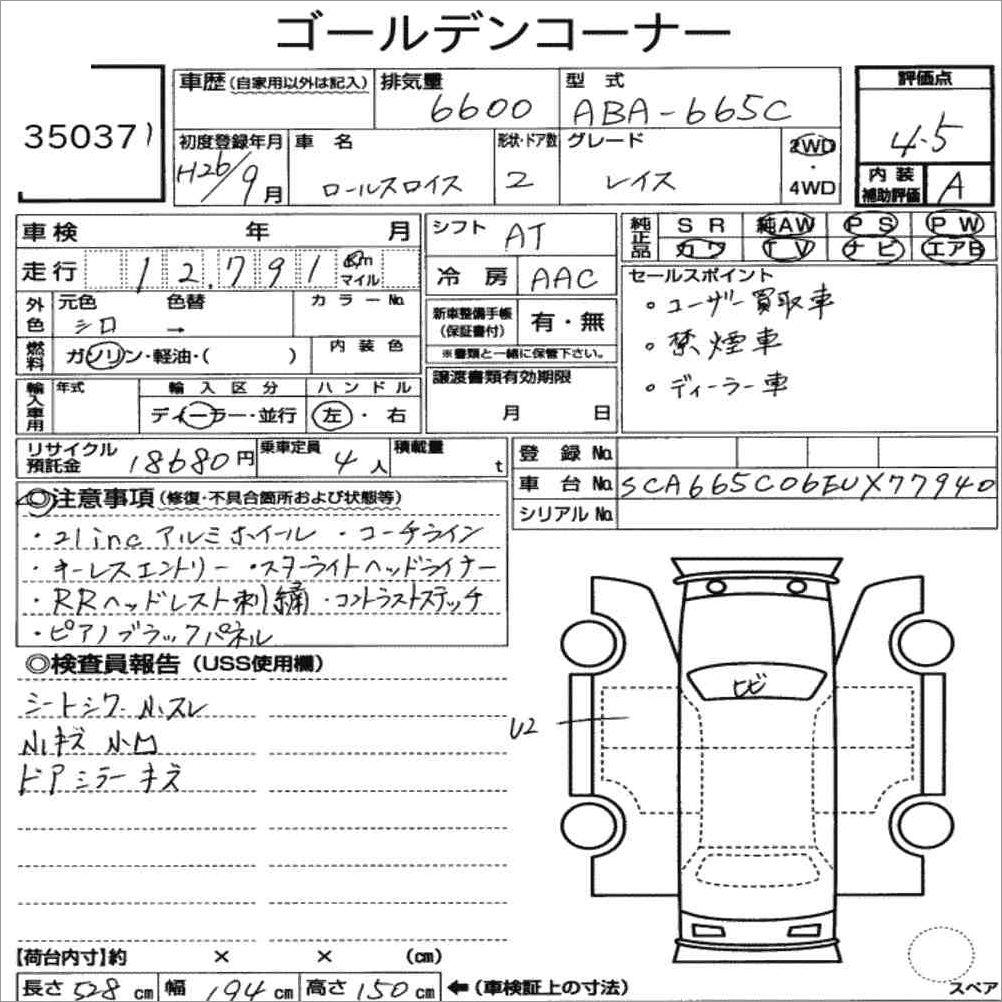 ゴールデンコーナー
350371
車歴(自家用以外は記入)
排気量
6600
型 式
ABA-665C
評価点
4.5
初度登録年月
H26/9月
車 名
ロールスロイス
形状・ドア数
2
グレード
レイス
2WD
・
4WD
内 装
補助評価
A
車検 年 月
シフト
AT
純正品
SR 純AW PS PW
カワ TV ナビ エアB
走行 12,791 Km
マイル
冷 房
AAC
セールスポイント
・ユーザー買取車
・禁煙車
・ディーラー車
外色
元色 色替
シロ →
カラーNo.
新車整備手帳
(保証書付)
有・無
※書類と一緒に保管下さい。
燃料
ガソリン・軽油・( )
内装色
輸入車用
年式
輸入区分
ディーラー・並行
ハンドル
左・右
譲渡書類有効期限
月 日
リサイクル
預託金
18680円
乗車定員
4人
積載量
t
登録No.
車台No. SCA665C06EUX77940
シリアルNo.
◎注意事項(修復・不具合箇所および状態等)
・21inc アルミホイール ・コーチライン
・キーレスエントリー ・スターライトヘッドライナー
・RRヘッドレスト刺繍・コントラストステッチ
・ピアノブラックパネル
◎検査員報告(USS使用欄)
シートシワ 小スレ
小キズ 小凹
ドアミラーキズ
ヒビ
U2
【荷台内寸】約 × × (cm)
長さ528cm 幅194cm 高さ150cm ←(車検証上の寸法)
スペア